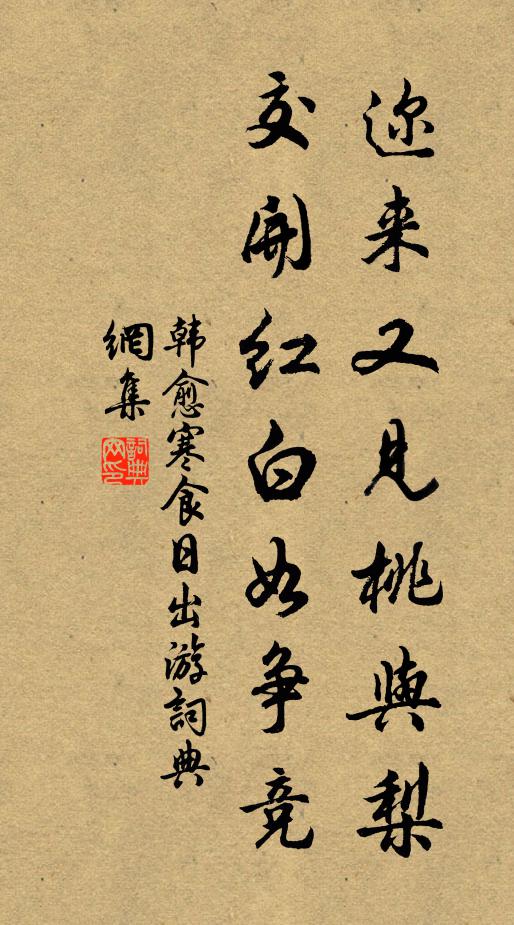 迩来又见桃與梨
交開红白如争竞
韩愈寒食日出游詞典
網集
詞典網印